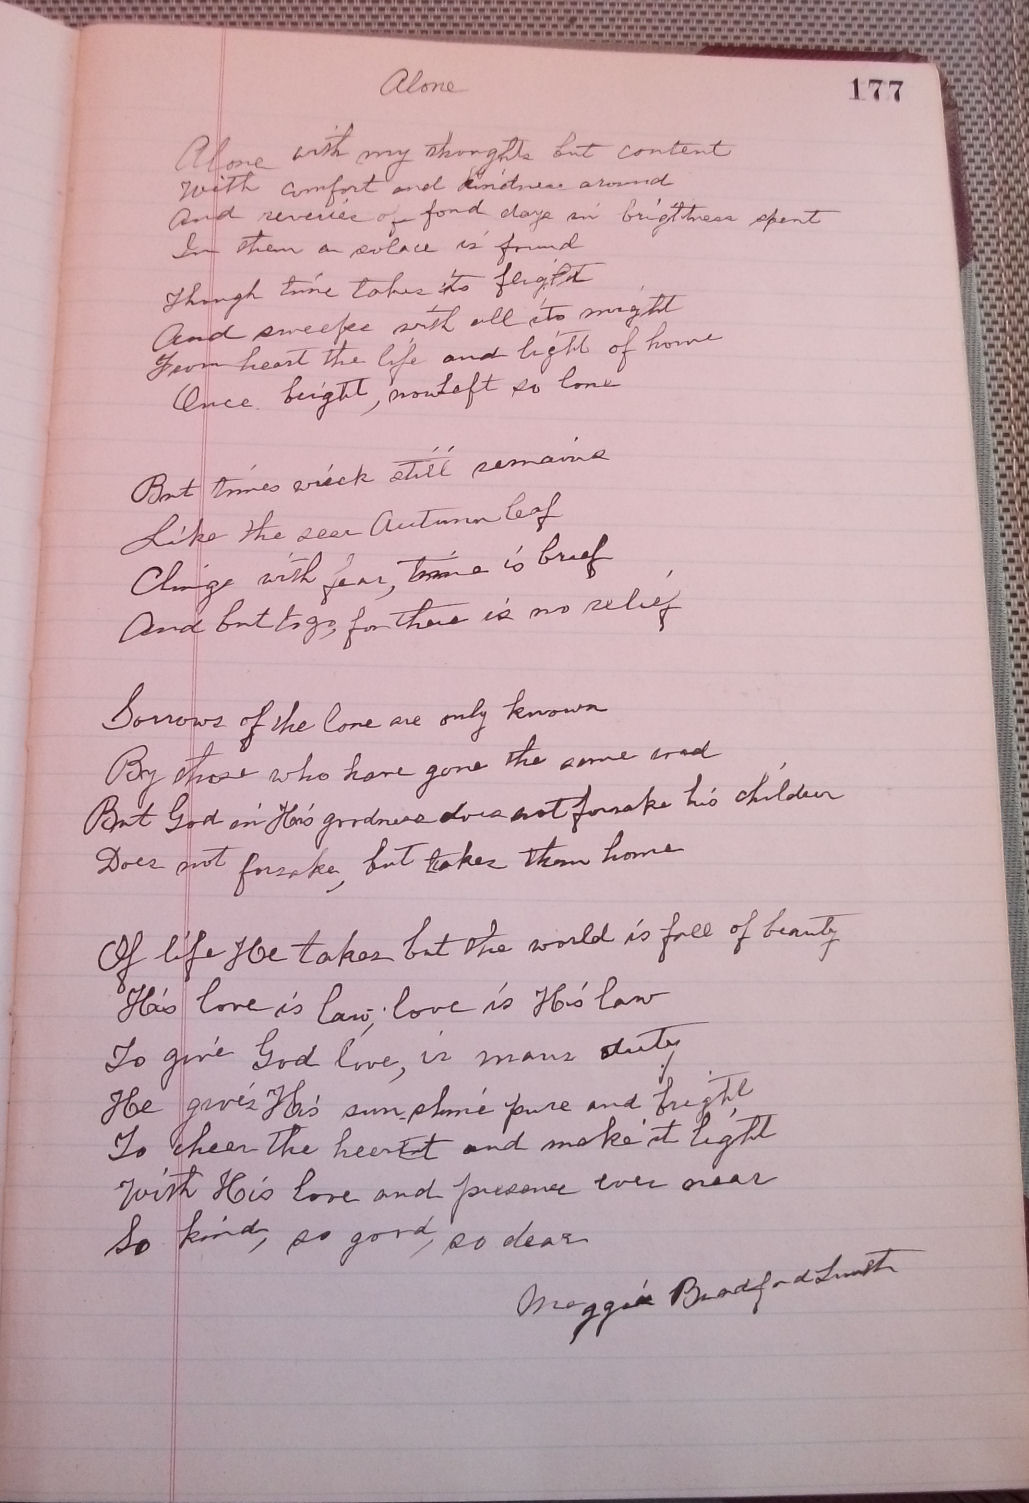 Alone
177
Alone with my thoughts but content
With comfort and kindness around
And reveries of fond days in brightness spent
In them a solace is found
Though time takes its flight
And sweeps with all its might
From heart the life and light of home
Once bright, now left so lone
But times wreck still remains
Like the seer Autumn leaf
Clings with fear, time is brief
And but to go, for there is no relief
Sorrows of the lone are only known
By those who have gone the same road
But God in His goodness does not forsake his children
Does not forsake, but takes them home
Of life He takes but the world is full of beauty
His love is law, love is His law
To give God love, is mans duty
He gives His sun-shine pure and bright
To cheer the heart and make it light
With His love and presence ever near
So kind, so good, so dear
Maggie Bradford Smith